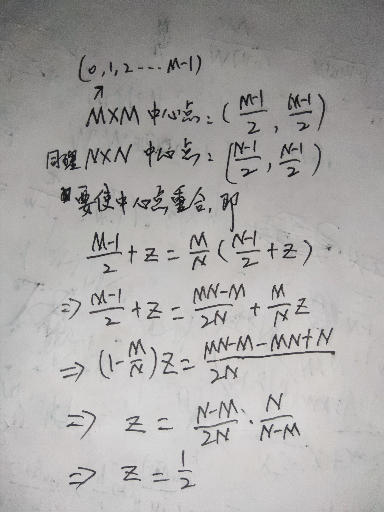 (0,1,2---- M-1)
↗
M×M 中心点:(\frac{M-1}{2}, \frac{M-1}{2})
同理 N×N 中心点:(\frac{N-1}{2}, \frac{N-1}{2})
要使中心点重合,即
\frac{M-1}{2}+z=\frac{M}{N}(\frac{N-1}{2}+z)
⇒ \frac{M-1}{2}+z=\frac{MN-M}{2N}+\frac{M}{N}z
⇒ (1-\frac{M}{N})z=\frac{MN-M-MN+N}{2N}
⇒ z=\frac{N-M}{2N}·\frac{N}{N-M}
⇒ z=\frac{1}{2}